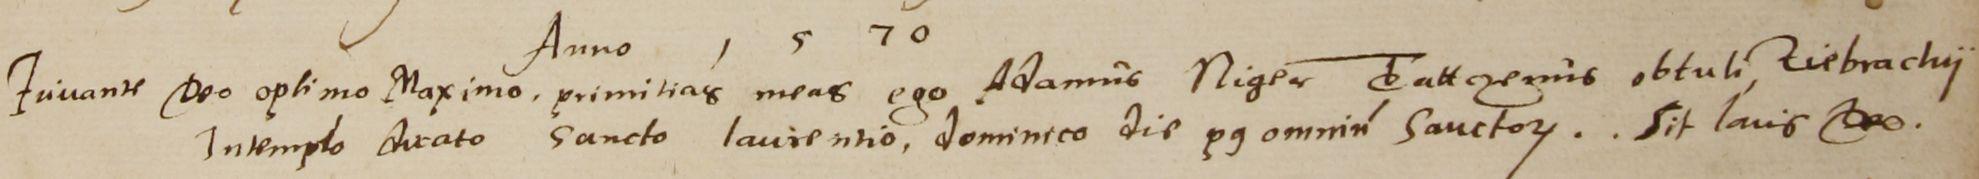 Anno 1570
Iuvante Deo optimo Maximo, primitias meas ego Adamus Niger obtuli
In templo dicato Sancto laurentio, dominico die pꝰ omniū Sanctoꝝ . . Sit laus Deo.